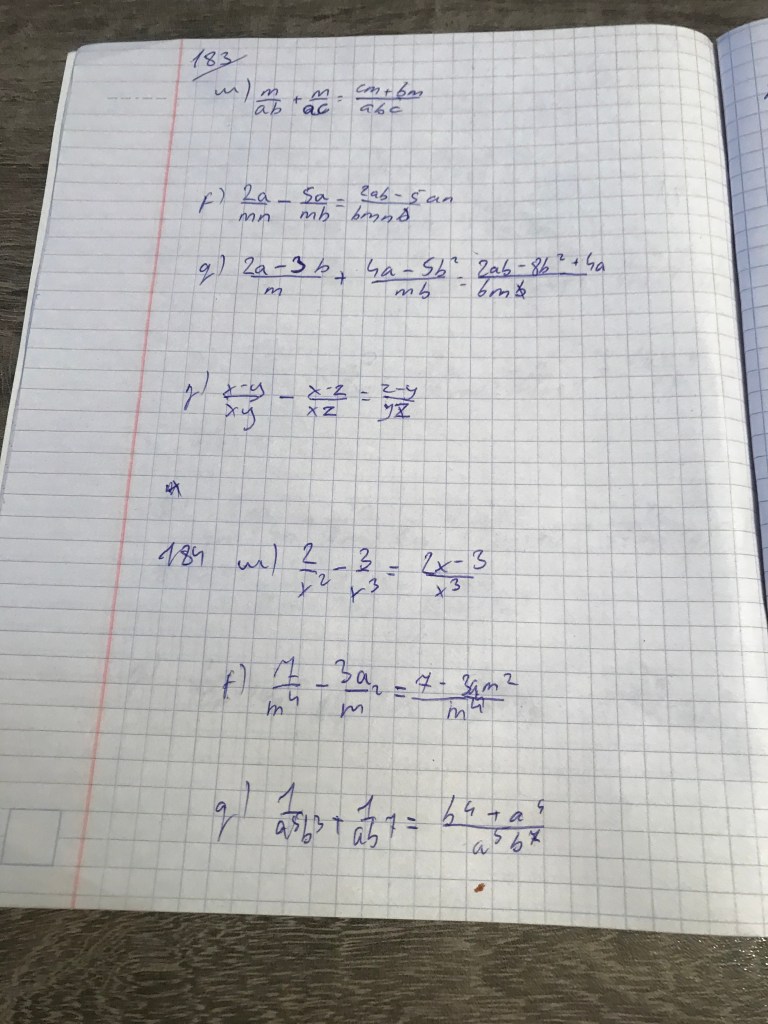 183
ա) m/ab + m/ac = cm+bm/abc
բ) 2a/mn - 5a/mb = 2ab-5an/bmn
գ) 2a-3b/m + 4a-5b²/mb = 2ab-8b²+4a/bm
դ) x-y/xy - x-z/xz = z-y/yz
184 ա) 2/x² - 3/x³ = 2x-3/x³
բ) 7/m⁴ - 3a/m² = 7-3am²/m⁴
գ) 1/a⁵b³ + 1/ab⁷ = b⁴+a⁴/a⁵b⁷